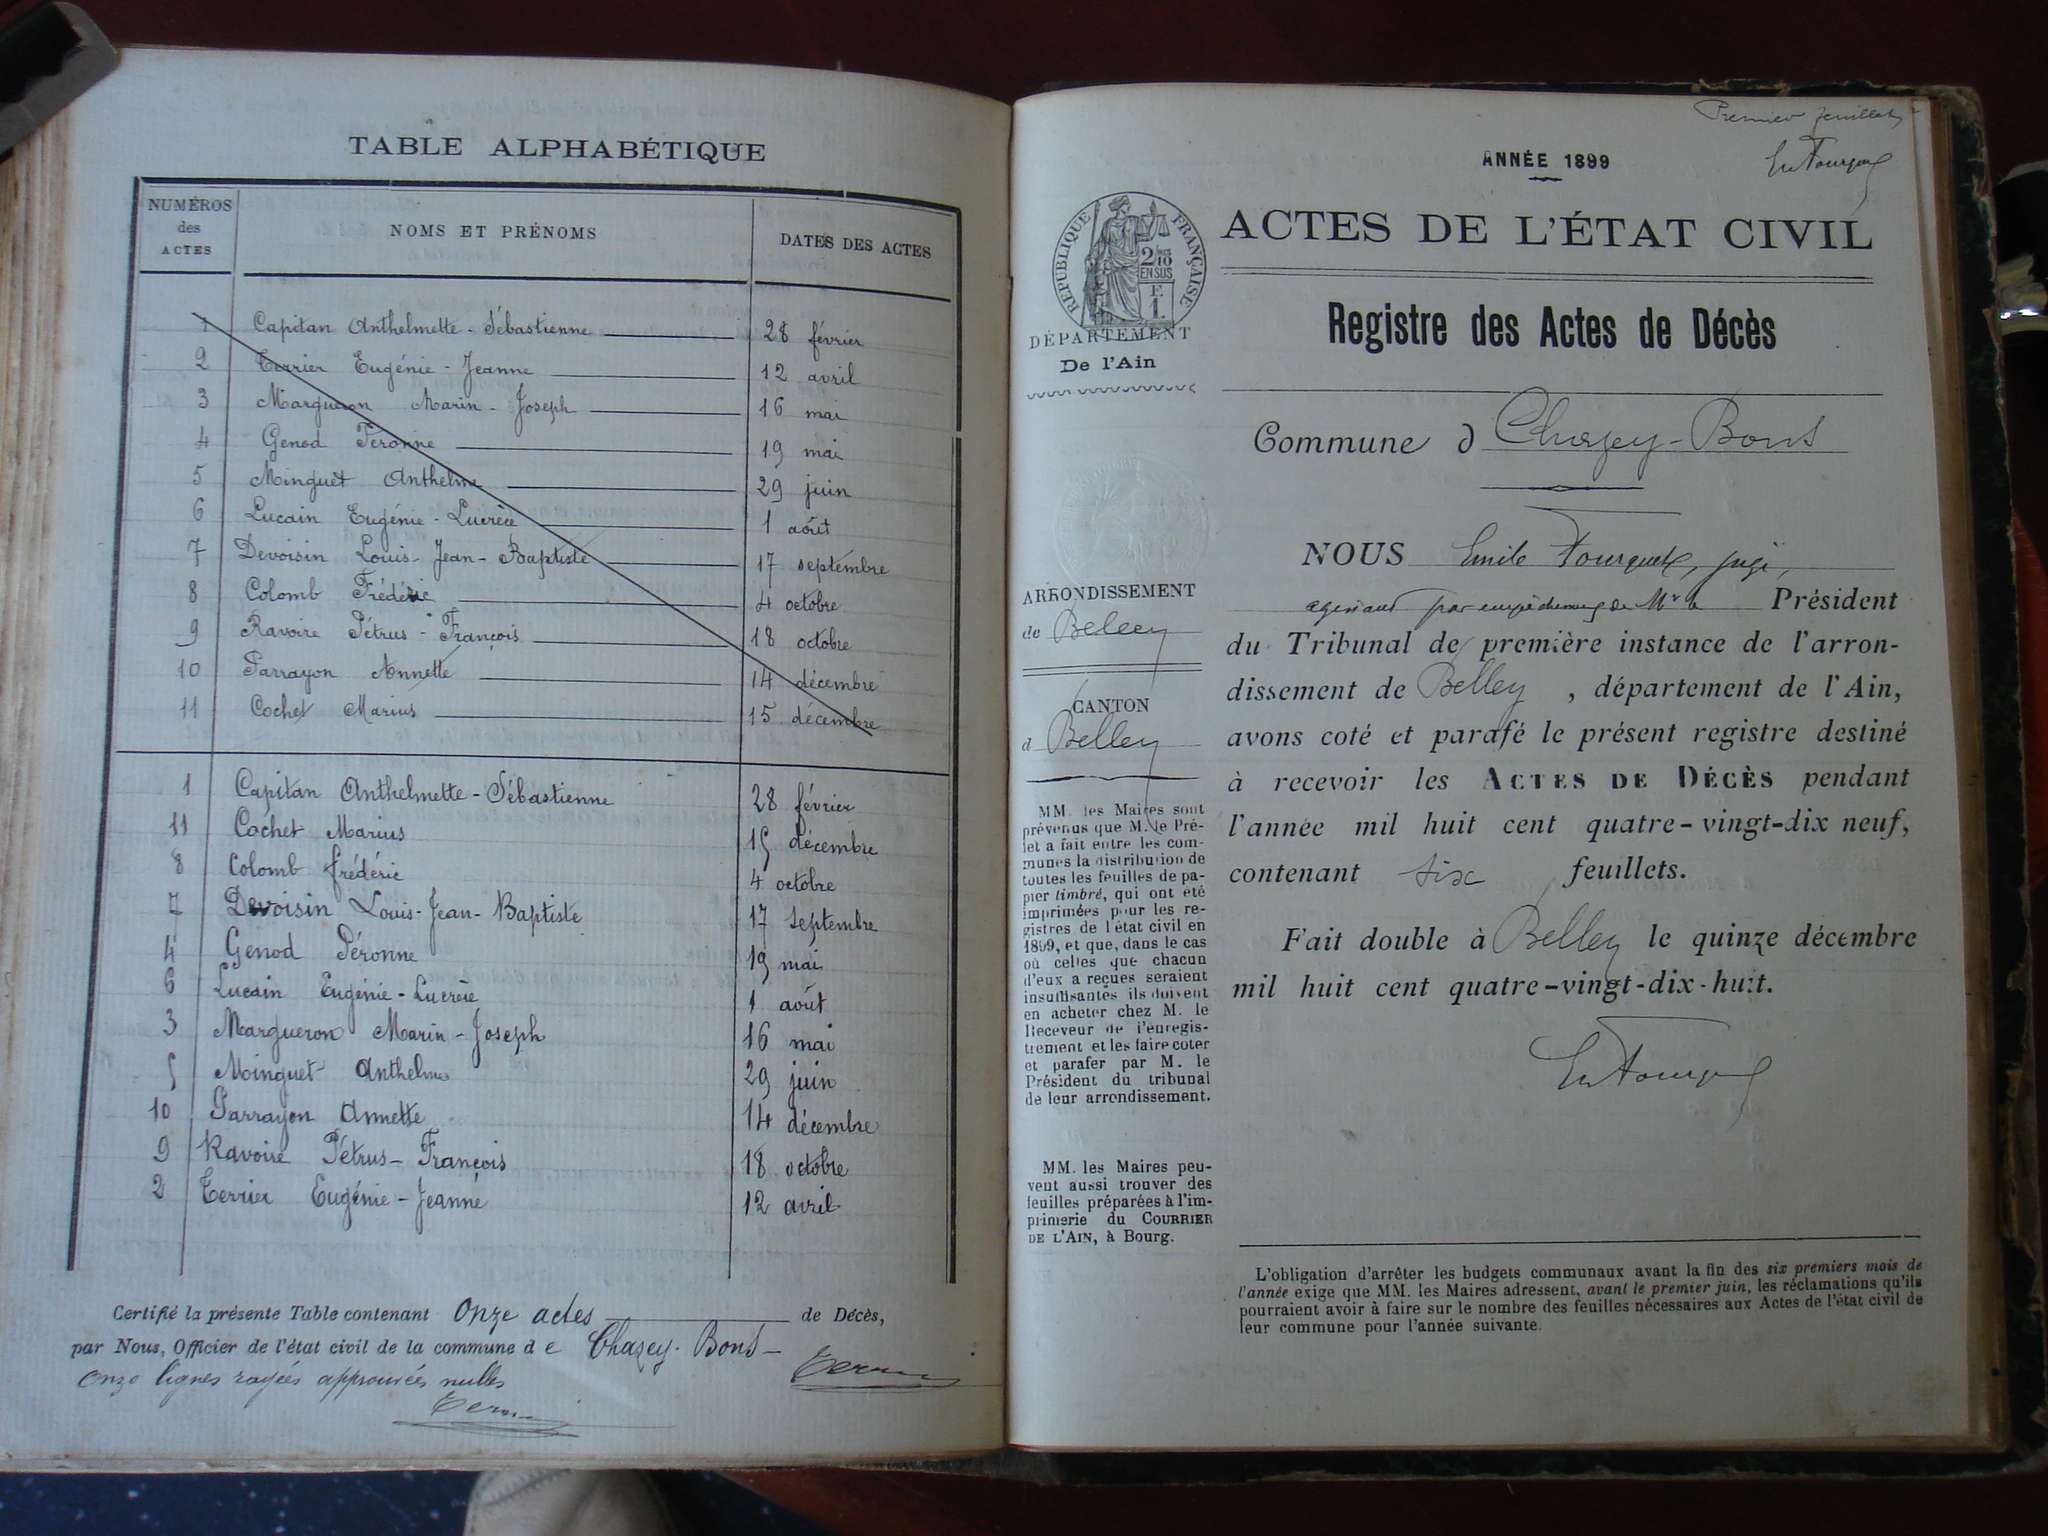 TABLE ALPHABÉTIQUE
NUMÉROS des ACTES | NOMS ET PRÉNOMS | DATES DES ACTES
1 Capitan Anthelmette - Sébastienne 28 février
2 Terrier Eugénie - Jeanne 12 avril
3 Margueron Marin - Joseph 16 mai
4 Genod Péronne 19 mai
5 Minguet Anthelme 29 juin
6 Lucain Eugénie - Lucrèce 1 août
7 Devoisin Louis - Jean - Baptiste 17 septembre
8 Colomb Frédéric 4 octobre
9 Ravoire Pétrus - François 18 octobre
10 Parrayon Annette 14 décembre
11 Cochet Marius 15 décembre
1 Capitan Anthelmette - Sébastienne 28 février
11 Cochet Marius 15 décembre
8 Colomb frédéric 4 octobre
7 Devoisin Louis - Jean - Baptiste 17 septembre
4 Genod Péronne 19 mai
6 Lucain Eugénie - Lucrèce 1 août
3 Margueron Marin - Joseph 16 mai
5 Minguet Anthelme 29 juin
10 Parrayon Annette 14 décembre
9 Ravoire Pétrus - François 18 octobre
2 Terrier Eugénie - Jeanne 12 avril
Certifié la présente Table contenant Onze actes de Décès,
par Nous, Officier de l'état civil de la commune de Chazey - Bons -
Onze lignes rayées approuvées nulles
Premier feuillet
ANNÉE 1899
RÉPUBLIQUE FRANÇAISE
2/10 EN SUS
F. 1.
DÉPARTEMENT
De l'Ain
ACTES DE L'ÉTAT CIVIL
Registre des Actes de Décès
Commune d Chazey - Bons
ARRONDISSEMENT
de Belley
CANTON
d Belley
MM. les Maires sont
prévenus que M. le Pré-
fet a fait entre les com-
munes la distribution de
toutes les feuilles de pa-
pier timbré, qui ont été
imprimées pour les re-
gistres de l'état civil en
1899, et que, dans le cas
où celles que chacun
d'eux a reçues seraient
insuffisantes ils doivent
en acheter chez M. le
Receveur de l'enregis-
trement et les faire coter
et parafer par M. le
Président du tribunal
de leur arrondissement.
MM. les Maires peu-
vent aussi trouver des
feuilles préparées à l'im-
primerie du COURRIER
DE L'AIN, à Bourg.
NOUS Emile Fourquet, juge,
par empêchement de Mr le Président
du Tribunal de première instance de l'arron-
dissement de Belley, département de l'Ain,
avons coté et parafé le présent registre destiné
à recevoir les ACTES DE DÉCÈS pendant
l'année mil huit cent quatre-vingt-dix neuf,
contenant six feuillets.
Fait double à Belley le quinze décembre
mil huit cent quatre-vingt-dix-huit.
L'obligation d'arrêter les budgets communaux avant la fin des six premiers mois de
l'année exige que MM. les Maires adressent, avant le premier juin, les réclamations qu'ils
pourraient avoir à faire sur le nombre des feuilles nécessaires aux Actes de l'état civil de
leur commune pour l'année suivante.